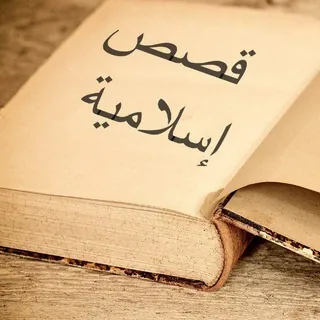 قصص
إسلامية